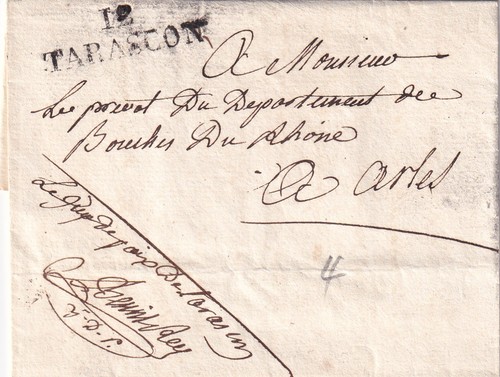 12
TARASCON
A Monsieur
Le prevot Du Departement des
Bouches Du Rhône
A Arles
Le juge de paix De tarascon
4